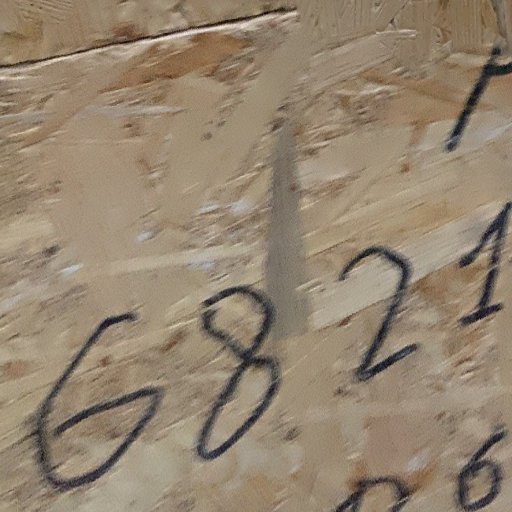 6821
6